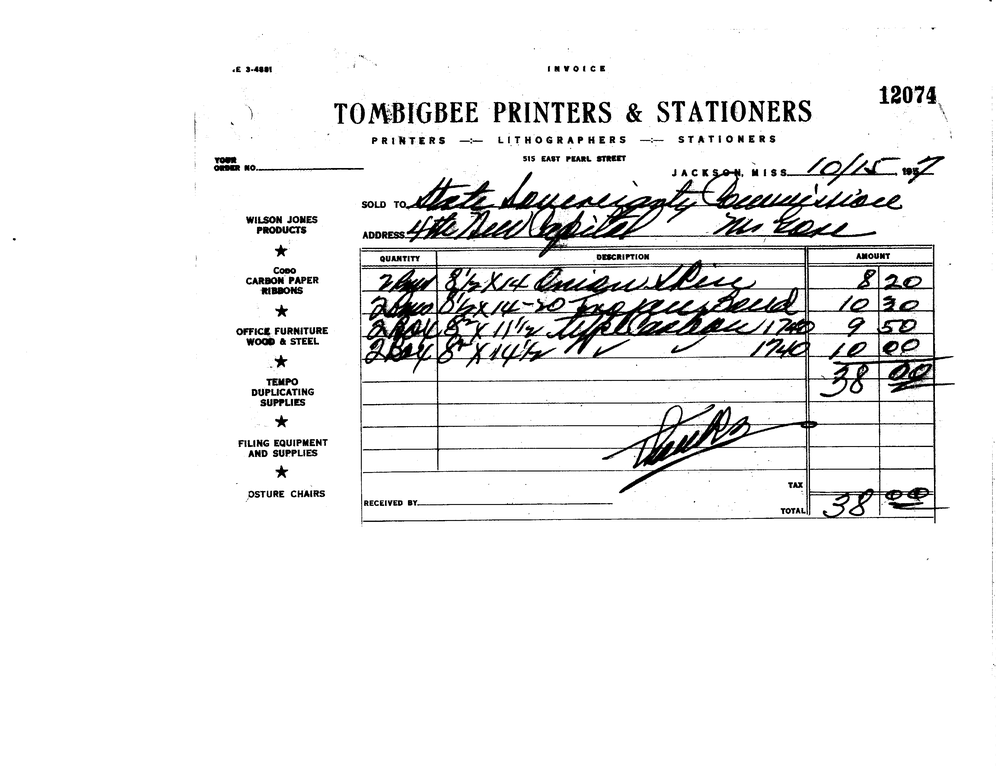 .E 3-4681
INVOICE
12074
TOMBIGBEE PRINTERS & STATIONERS
PRINTERS —:— LITHOGRAPHERS —:— STATIONERS
515 EAST PEARL STREET
YOUR
ORDER NO.
JACKSON, MISS. 10/15 1957
SOLD TO State Sovereignty Commission
ADDRESS 4th New Capitol
WILSON JONES
PRODUCTS
★
CODO
CARBON PAPER
RIBBONS
★
OFFICE FURNITURE
WOOD & STEEL
★
TEMPO
DUPLICATING
SUPPLIES
★
FILING EQUIPMENT
AND SUPPLIES
★
OSTURE CHAIRS
QUANTITY DESCRIPTION AMOUNT
2 8½ X 14 Onion Skin 8 20
2 8½ X 14-20 Bond 10 30
2 Box 8½ X 11½ Type Carbon 1740 9 50
2 Box 8½ X 14½ ✓ ✓ 1740 10 00
38 00
Thanks
TAX
RECEIVED BY
TOTAL 38 00